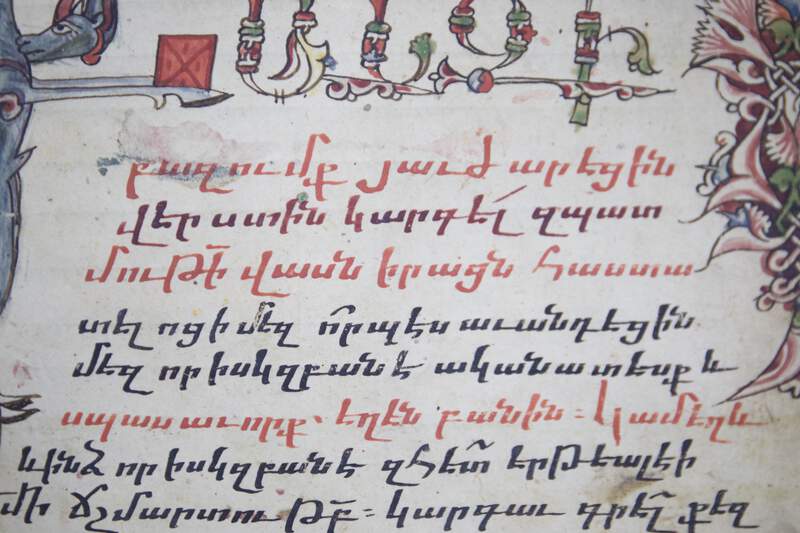 բազումք յաւժարեցին
վերստին կարգել զպատ
մութի՟ վասն իրացն հաստա
տելոցի մեզ ո՟րպէս աւանդեցին
մեզ որ իսկզբանէ ականատեսք և
սպասաւորք. եղէն բանին : կամեղև
ևինձ որ իսկզբանէ զհետ երթեալէի
մի՟ ճշմարտութբ՟ : կարգաւ գրել քեզ